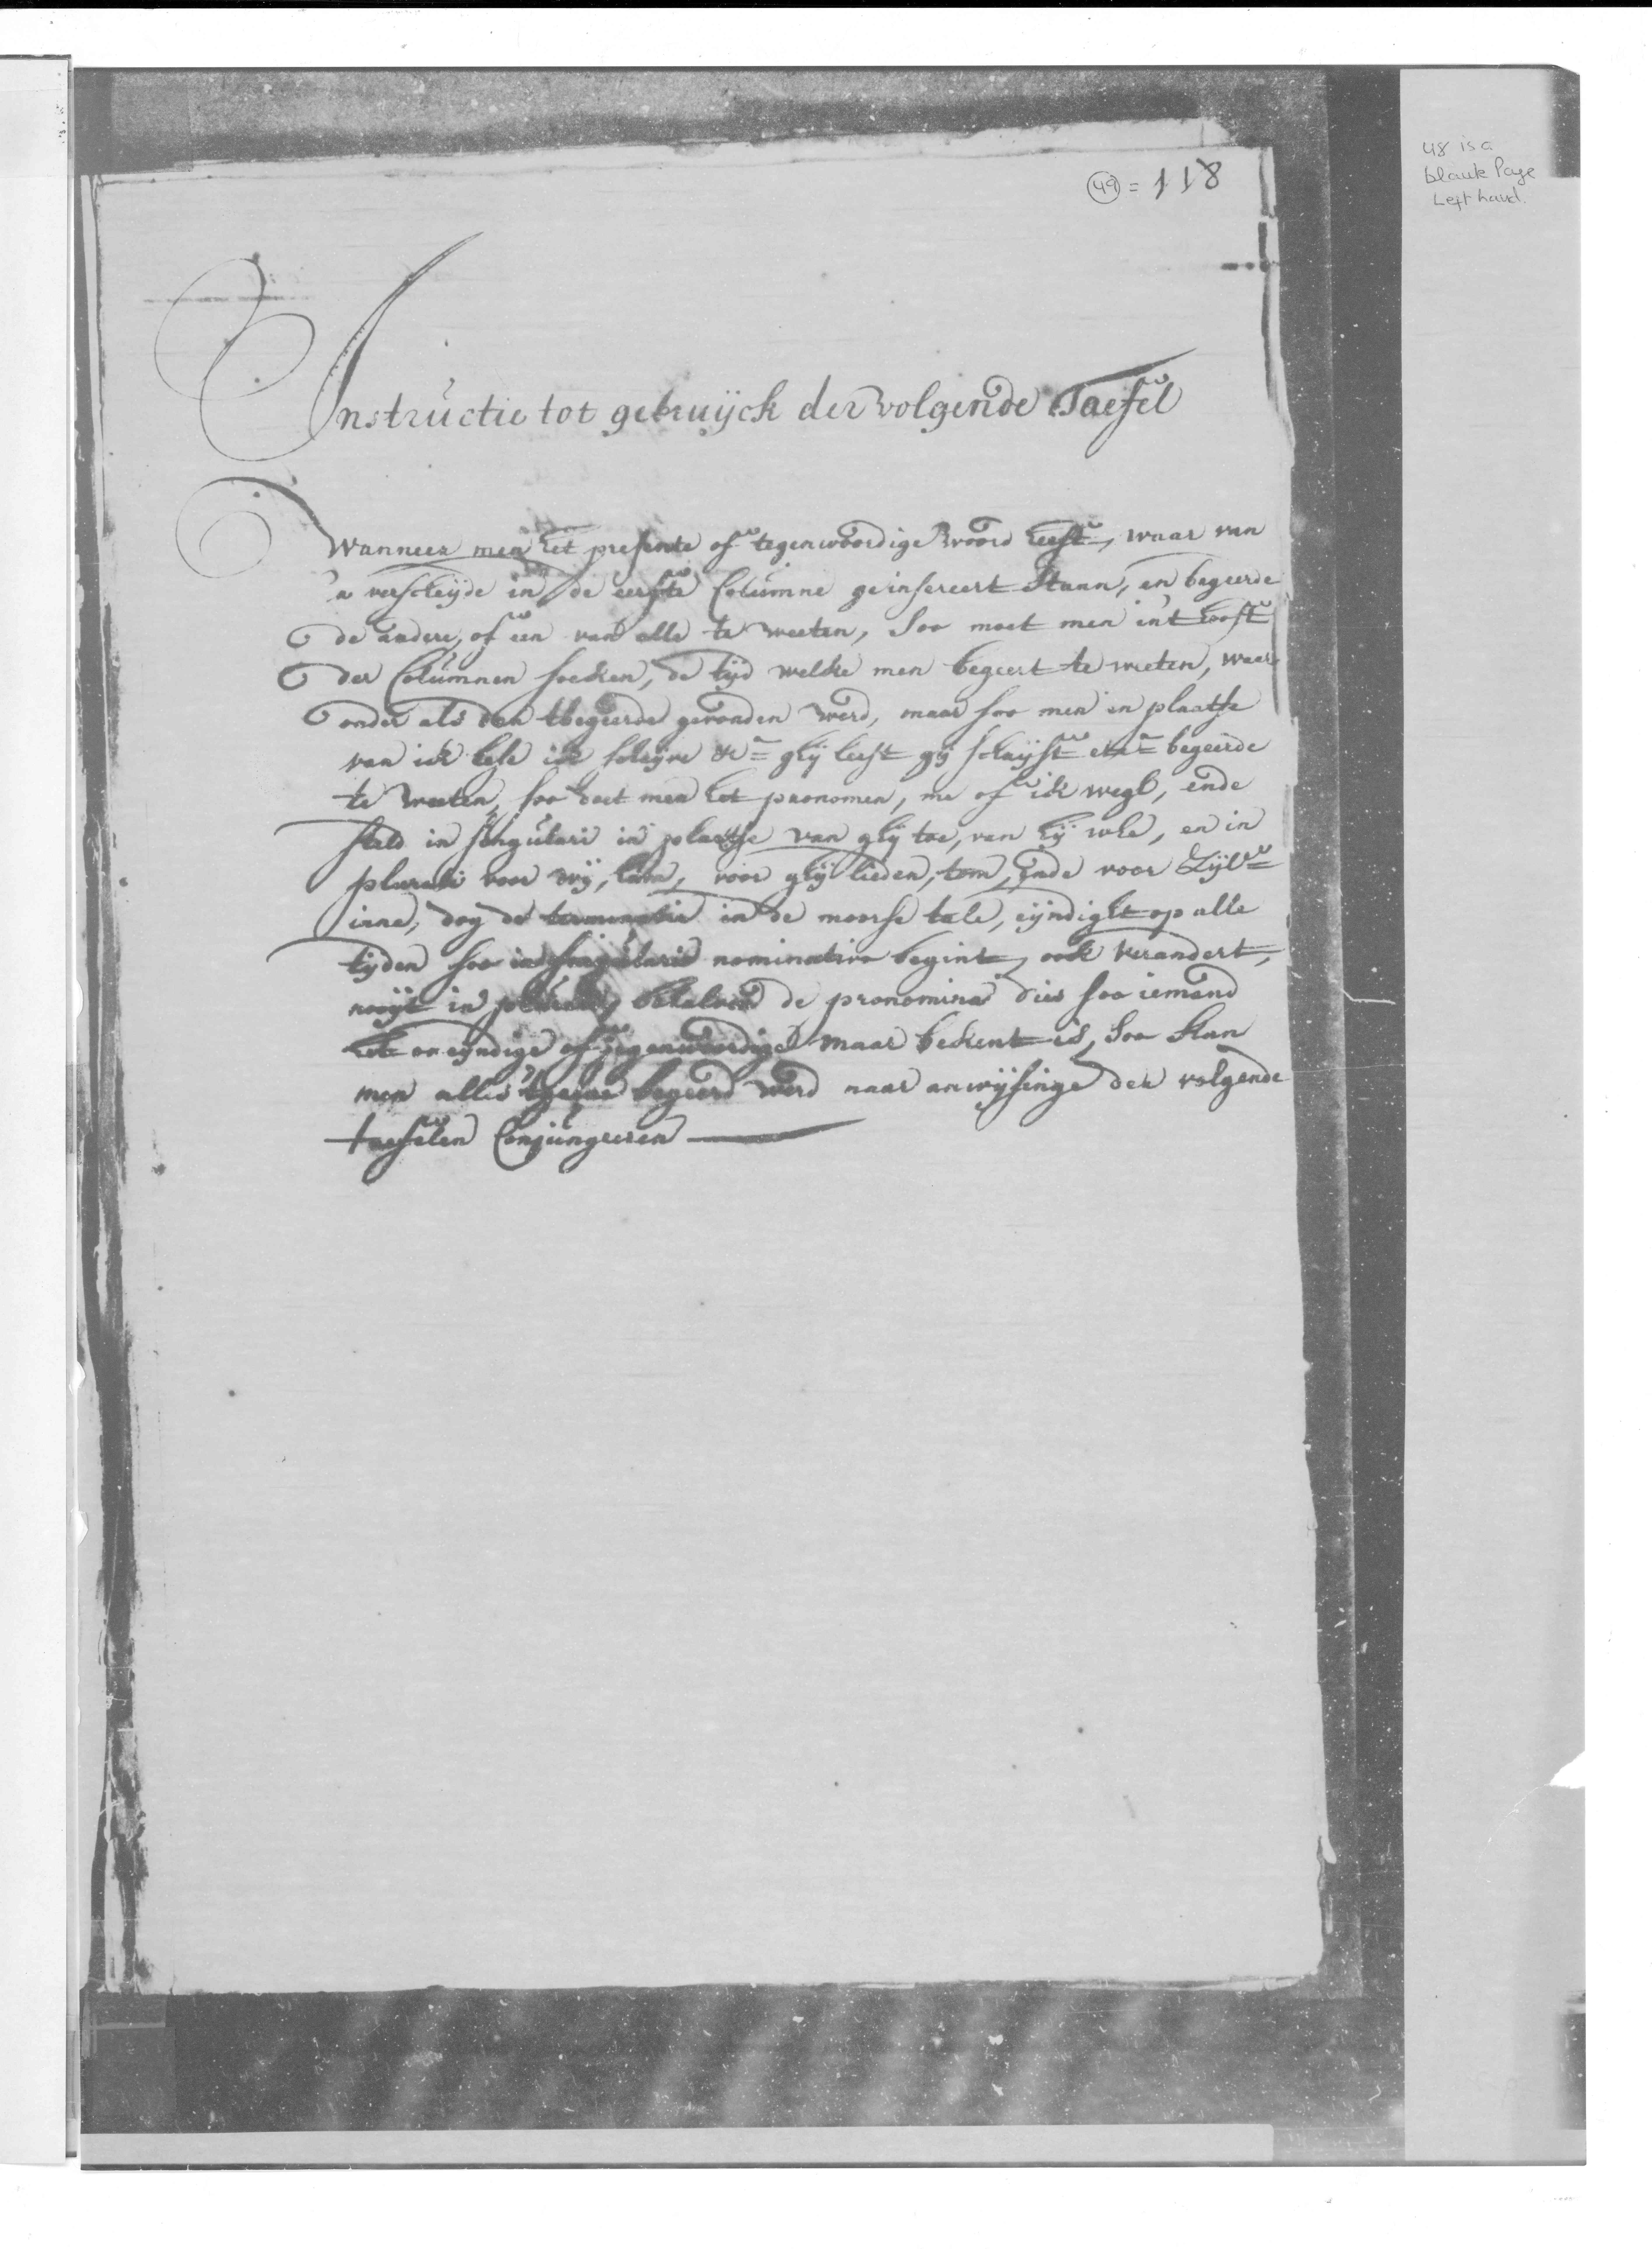 48 is a
blank Page
Left hand.
49 = 118
Instructie tot gebruijck der volgende Taefel
Wanneer men het presente of tegenwoordige woord heeft, waar van
'er verscheijde in de eerste Columne geinsereert staan, en begeerde
de andere, of een van alle te weeten, soo moet men in't hooft
der Columnen soeken, de tijd welke men begeert te weeten, waer
onder als dan tbegeerde gevonden werd, maar soo men in plaatse
van ick lese ick schrijve &c= ghij leest gij schrijft etca= begeerde
te weeten, soo doet men het pronomen, me of ick wegh, ende
steld in singulari in plaetse van ghij toe, van hij whe, en in
plurali voor wij, ham, voor ghij lieden, tom, ende voor Zijl=
inne, dog de terminatie in de moorse tale, eijndight op alle
tijden soo in singularis nominativo begint, ook verandert,
nooijt in plurali, behalven de pronomina dies soo iemand
het oneijndige of tegenwoordige maar bekent is, soo kan
men alles 'tgeene begeerd werd naar anwijsinge der volgende
taefelen Conjungeeren